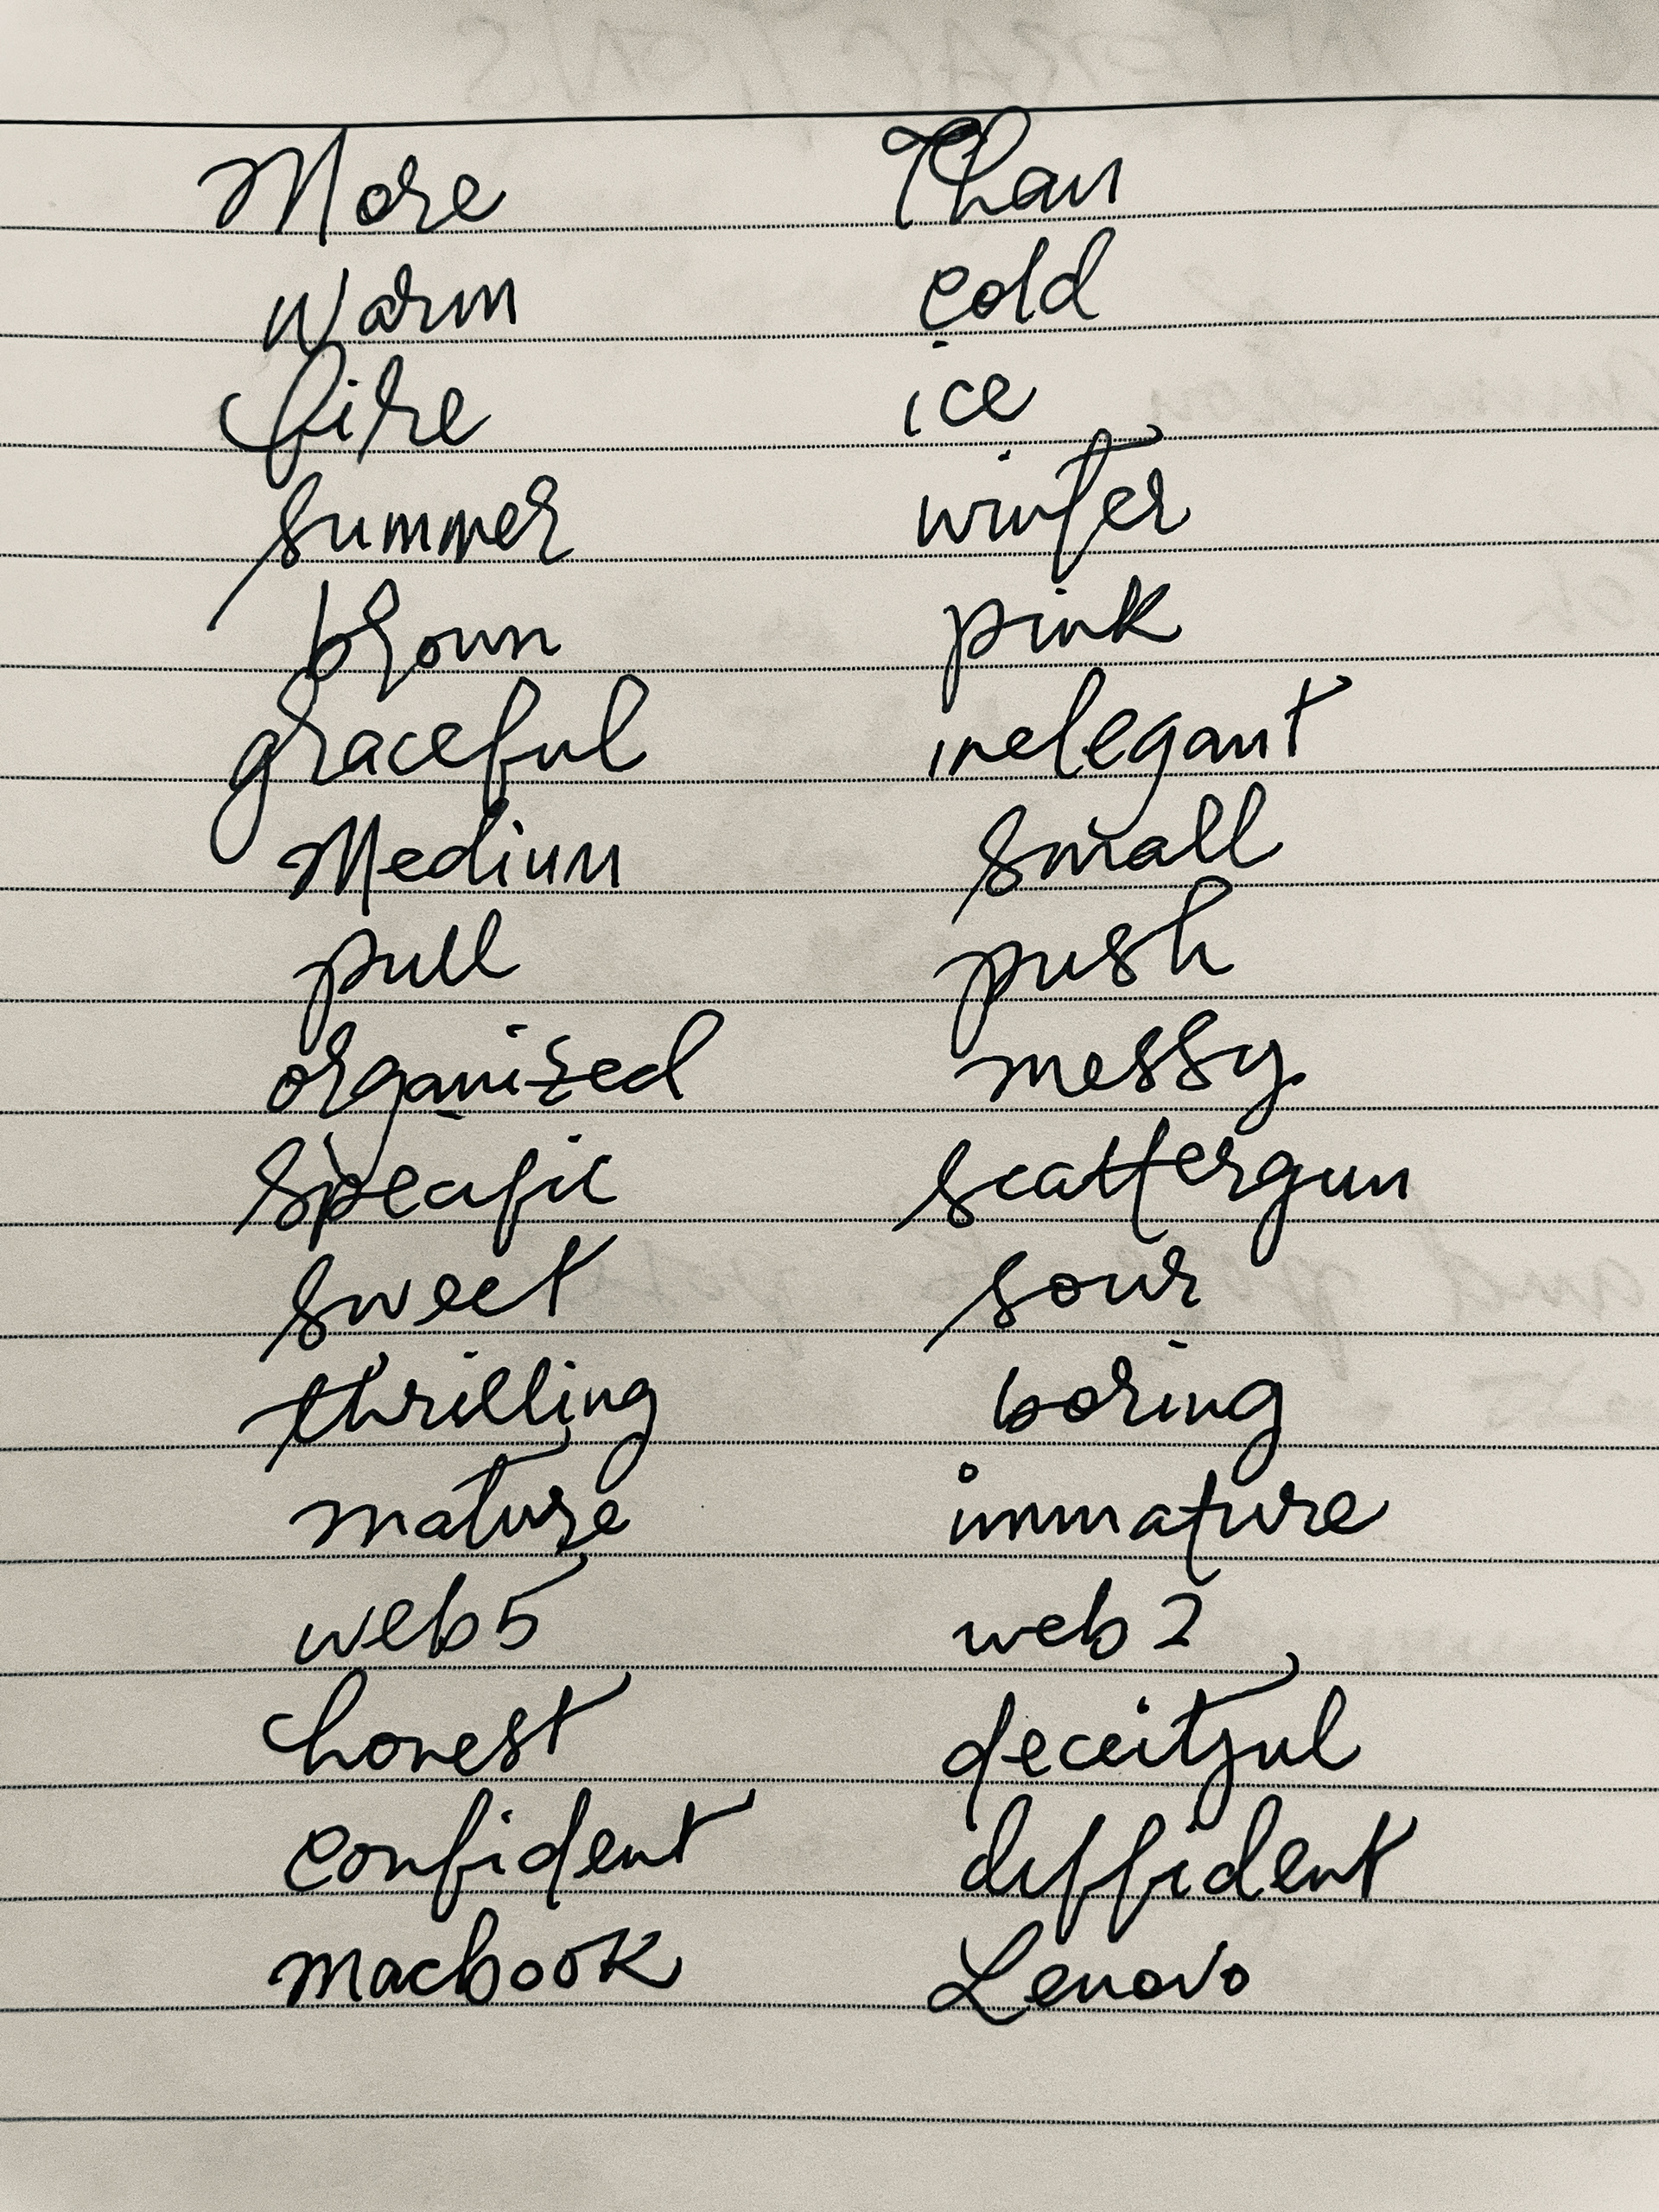 More Than
warm cold
fire ice
summer winter
brown pink
graceful inelegant
Medium small
pull push
organized messy
specific scattergun
sweet sour
thrilling boring
mature immature
web5 web2
honest deceitful
confident diffident
macbook Lenovo